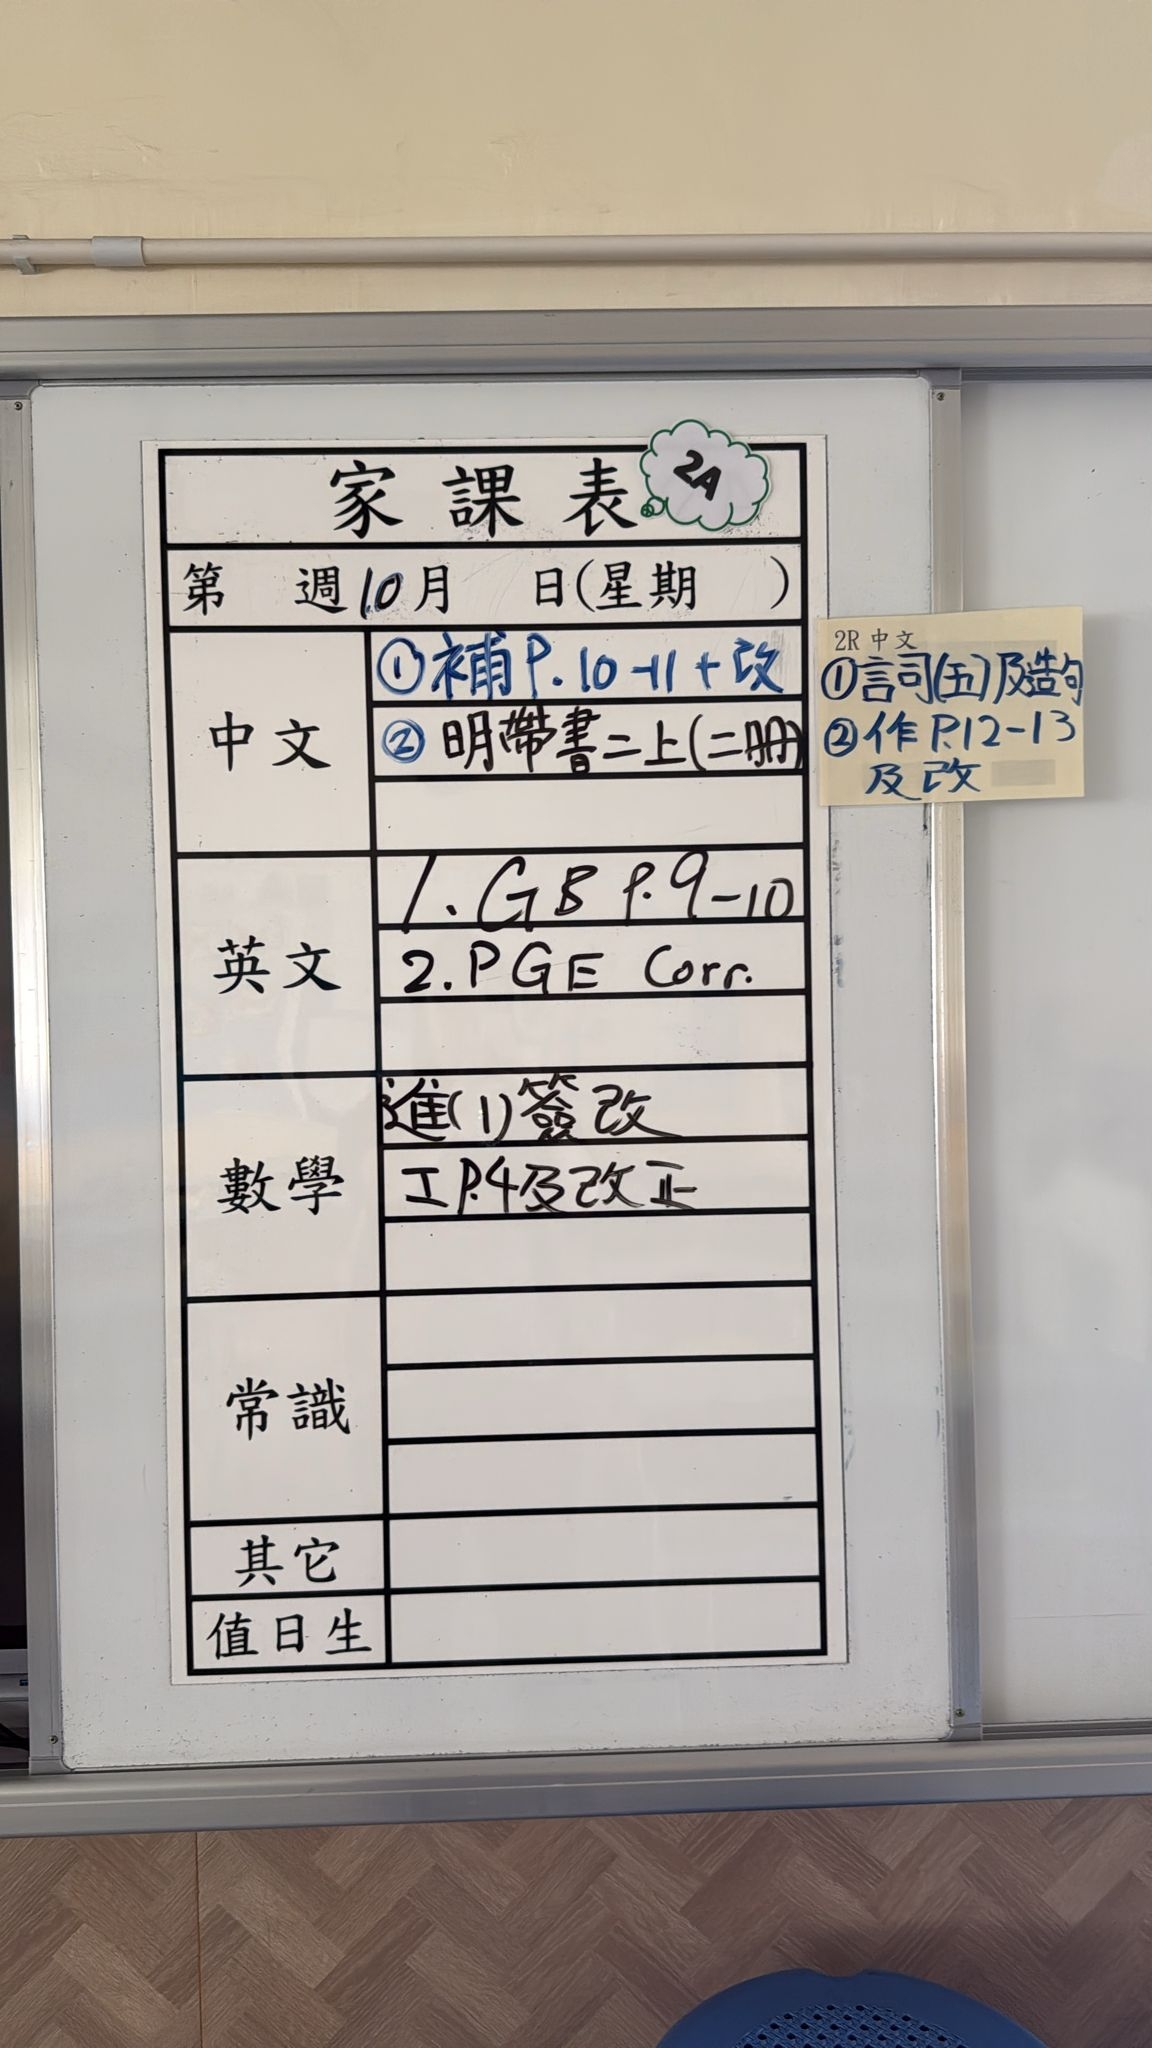 家課表
2A
第 週10月 日(星期 )
中文
①補P.10-11+改
②明帶書二上(二冊)
2R 中文
①詞(五)及造句
②作P.12-13
及改
英文
1. GB P.9-10
2. PGE Corr.
數學
進(1)簽改
工P.4及改正
常識
其它
值日生